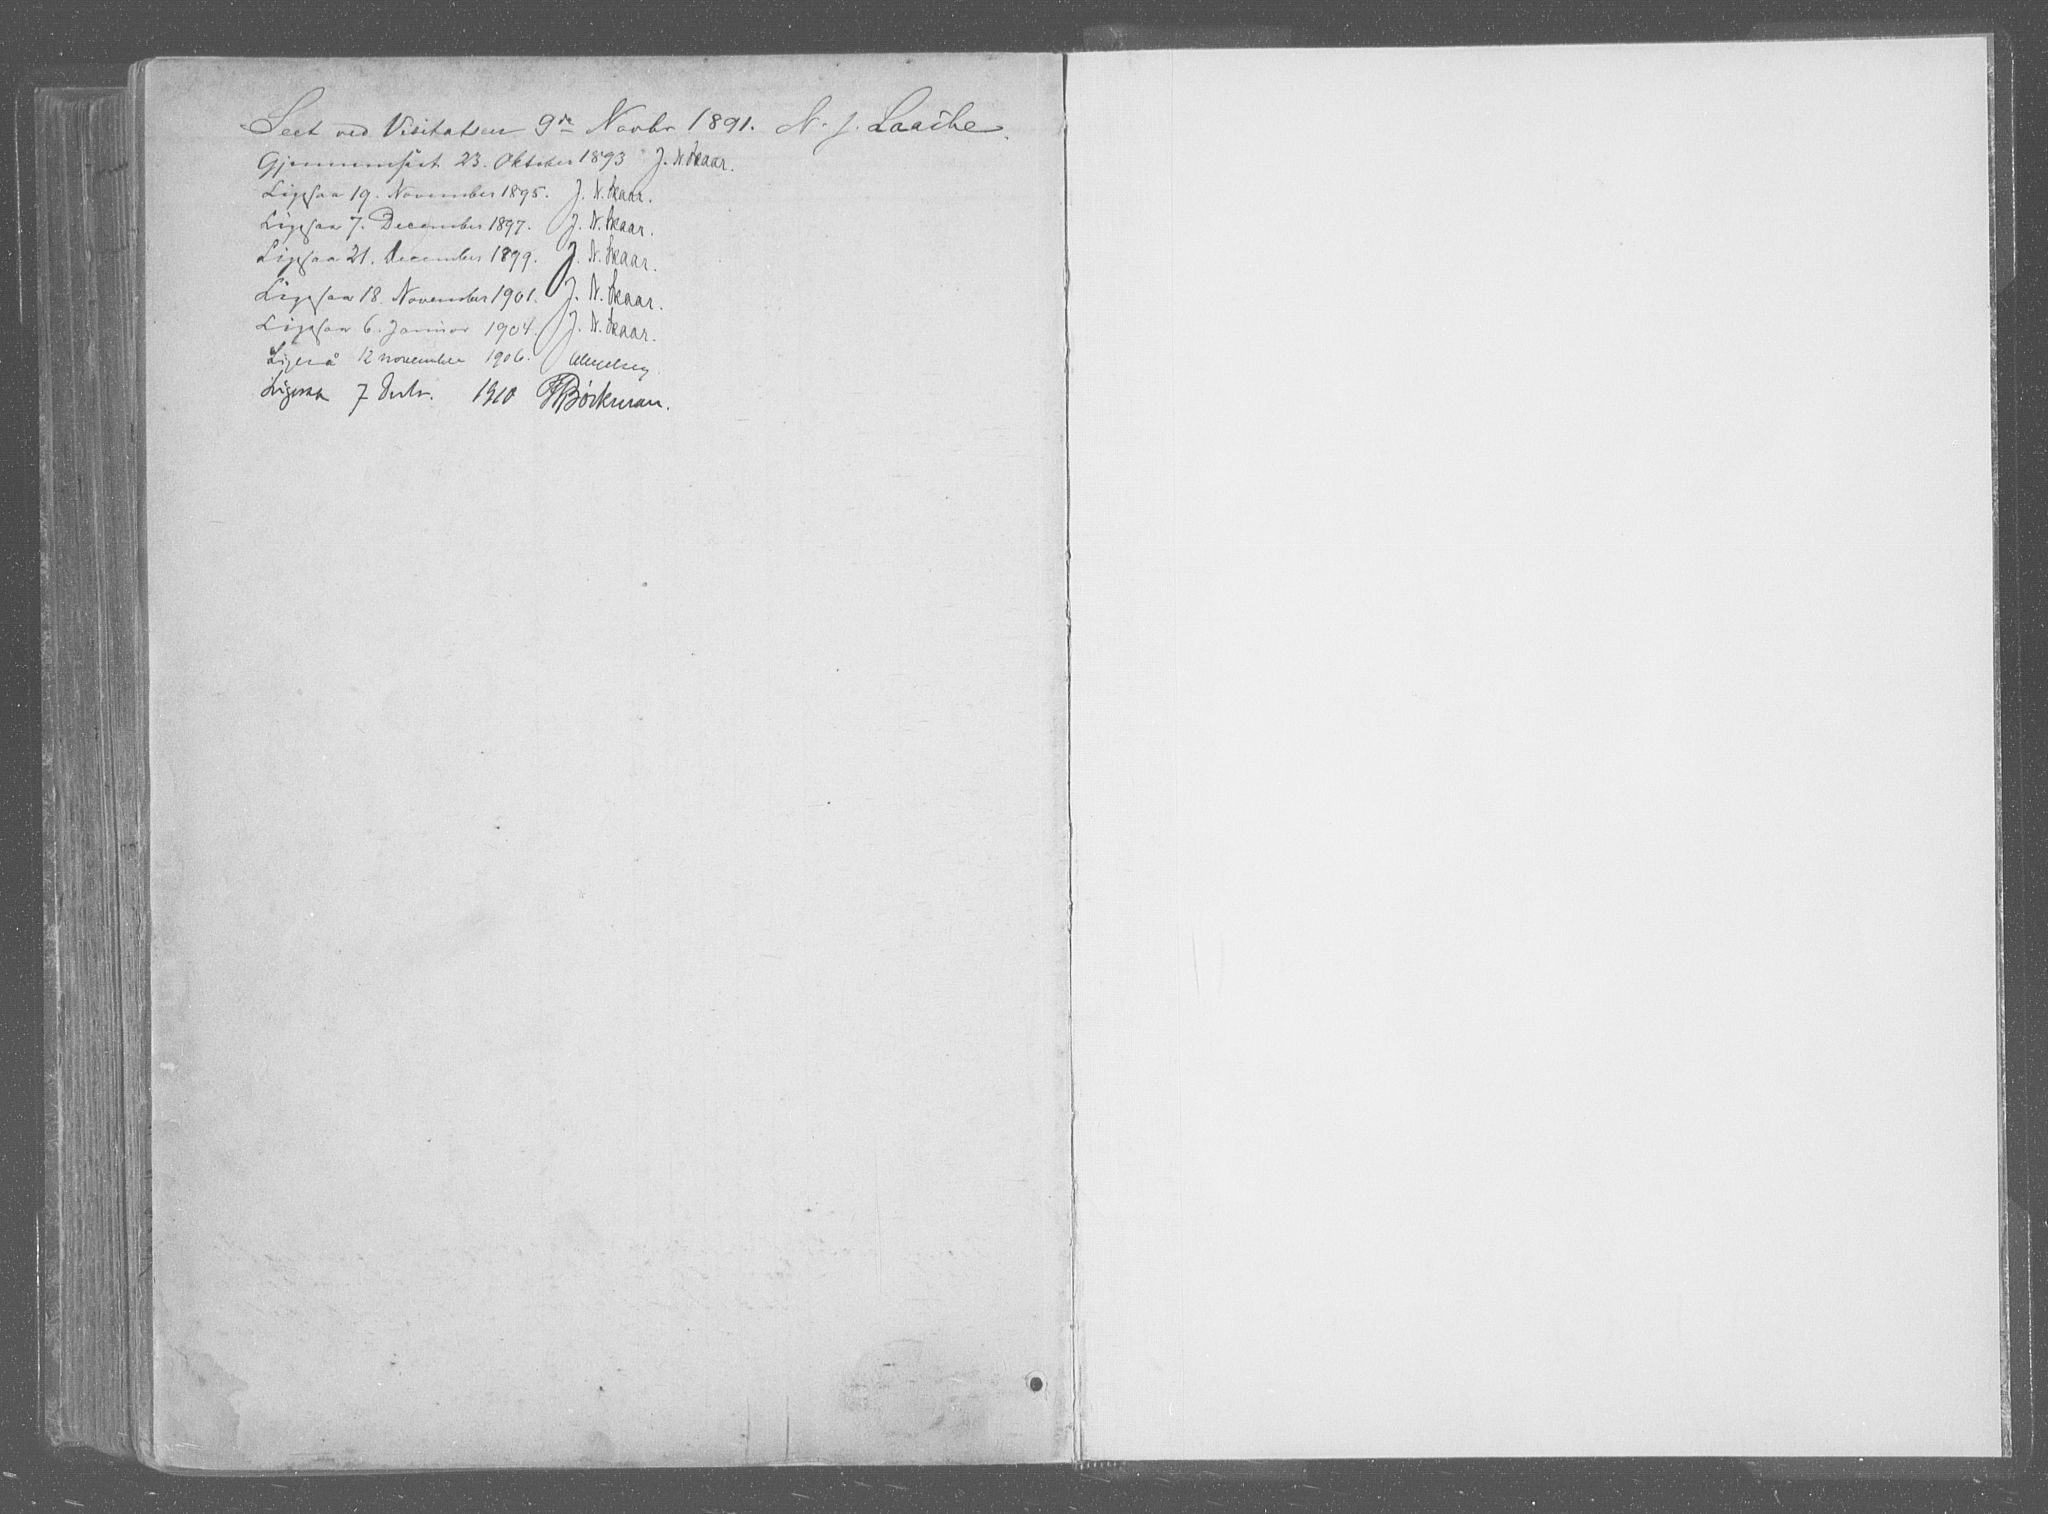 Seet ved Visitatsen 9de Novbr 1891. N. J. Laache.
Gjennemseet 23. Oktober 1893 J. N. Skaar.
Ligesaa 19. November 1895. J. N. Skaar.
Ligesaa 7. December 1897. J. N. Skaar.
Ligesaa 21. December 1899. J. N. Skaar.
Ligesaa 18. November 1901. J. N. Skaar.
Ligesaa 6. Januar 1904. J. N. Skaar.
Ligeså 12 november 1906.
Ligesaa 7 1910 Böckman.